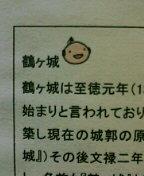 鶴ヶ城
鶴ヶ城は至徳元年(1
始まりと言われており
築し現在の城郭の原
城』)その後文禄二年